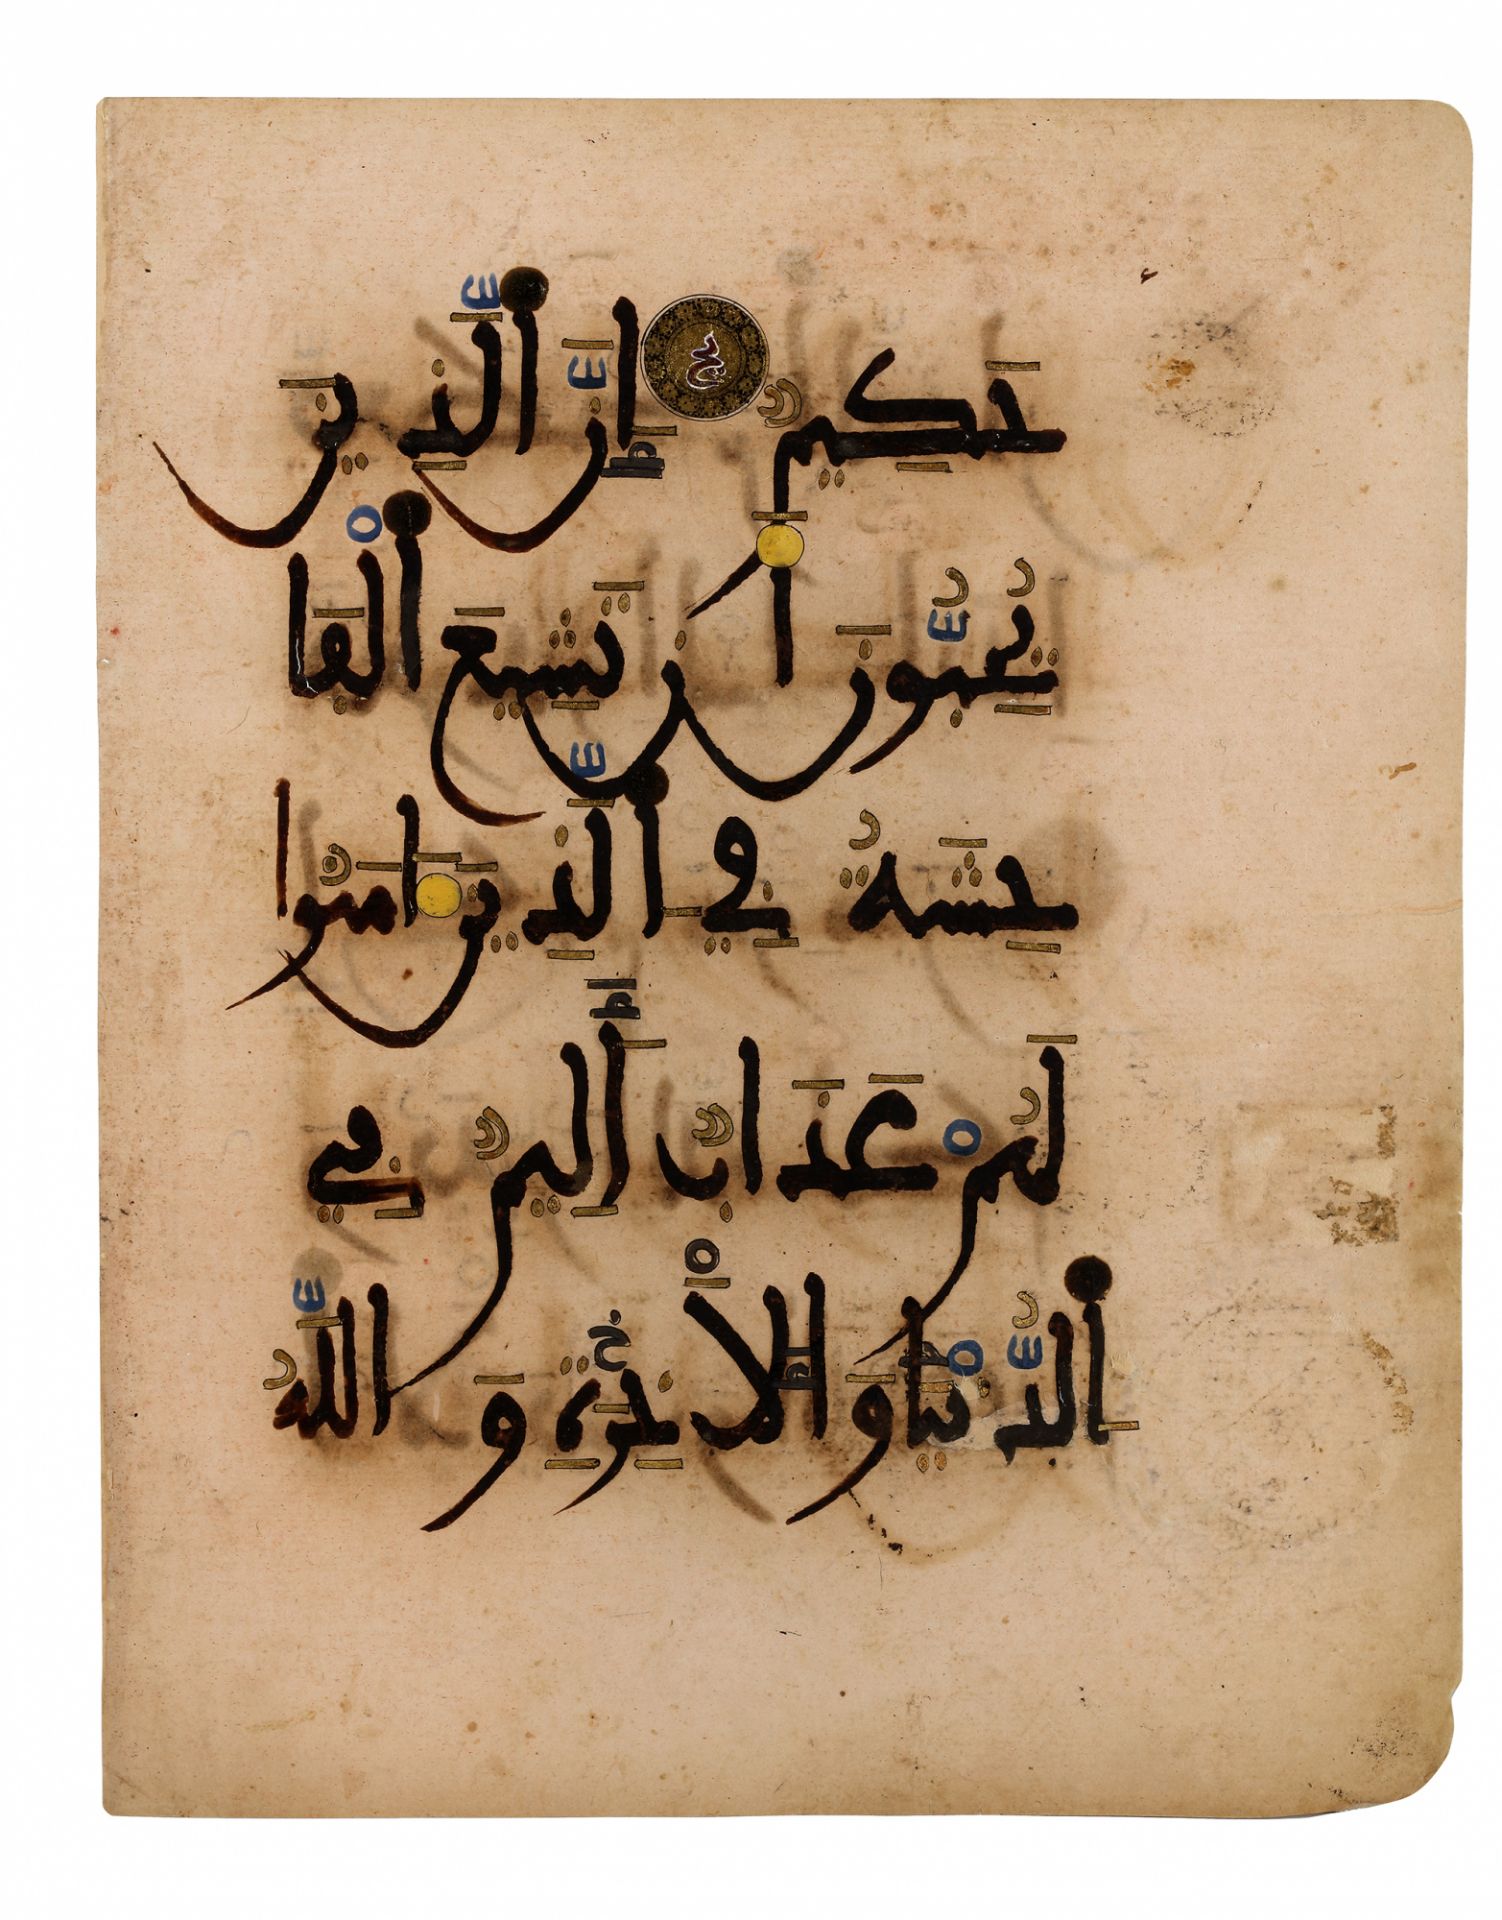 حَكِيمٌ إِنَّ ٱلَّذِينَ
يُحِبُّونَ أَن تَشِيعَ ٱلْفَا
حِشَةُ فِي ٱلَّذِينَ ءَامَنُوا
لَهُمْ عَذَابٌ أَلِيمٌ فِي
ٱلدُّنْيَا وَالْأَخِرَةِ وَاللَّهُ